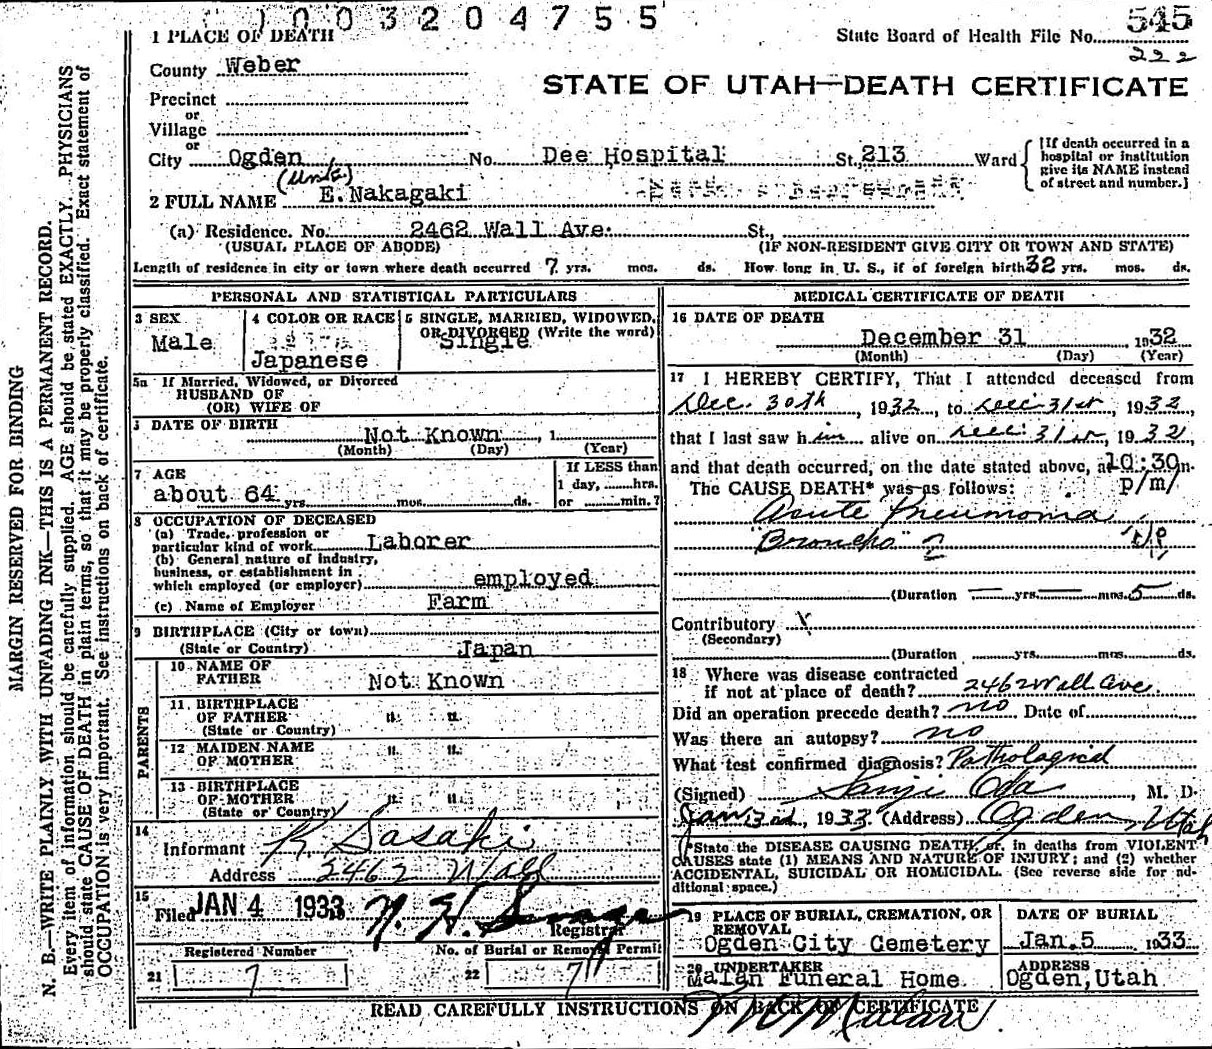 003204755
545
222
1 PLACE OF DEATH
State Board of Health File No.
County Weber
STATE OF UTAH—DEATH CERTIFICATE
Precinct
or
Village
or
City Ogden No. Dee Hospital St., 213 Ward
[If death occurred in a hospital or institution give its NAME instead of street and number.]
2 FULL NAME E. Nakagaki
(a) Residence. No. 2462 Wall Ave. St.,
(USUAL PLACE OF ABODE) (IF NON-RESIDENT GIVE CITY OR TOWN AND STATE)
Length of residence in city or town where death occurred 7 yrs. mos. ds. How long in U. S., if of foreign birth 32 yrs. mos. ds.
PERSONAL AND STATISTICAL PARTICULARS
3 SEX
Male
4 COLOR OR RACE
Japanese
5 SINGLE, MARRIED, WIDOWED, OR DIVORCED (Write the word)
Single
5a If Married, Widowed, or Divorced
HUSBAND OF
(OR) WIFE OF
DATE OF BIRTH
Not Known, 1
(Month) (Day) (Year)
7 AGE
about 64 yrs. mos. ds.
If LESS than
1 day, hrs.
or min.?
8 OCCUPATION OF DECEASED
(a) Trade, profession or
particular kind of work Laborer
(b) General nature of industry,
business, or establishment in
which employed (or employer) employed
(c) Name of Employer Farm
9 BIRTHPLACE (City or town)
(State or Country) Japan
PARENTS
10 NAME OF
FATHER Not Known
11 BIRTHPLACE
OF FATHER " "
(State or Country)
12 MAIDEN NAME
OF MOTHER " "
13 BIRTHPLACE
OF MOTHER " "
(State or Country)
14
Informant K Sasaki
Address 2462 Wall
15
Filed JAN 4 1933
Registrar
Registered Number
21 7
No. of Burial or Removal Permit
22 7
MEDICAL CERTIFICATE OF DEATH
16 DATE OF DEATH
December 31 1932
(Month) (Day) (Year)
17 I HEREBY CERTIFY, That I attended deceased from
Dec. 30th, 1932, to Dec 31st, 1932,
that I last saw him alive on Dec. 31st, 1932,
and that death occurred, on the date stated above, at 10:30 m.
p/m/
The CAUSE DEATH* was as follows:
Acute Pneumonia
"Broncho" ?
(Duration — yrs. — mos. 5 ds.
Contributory X
(Secondary)
(Duration yrs. mos. ds.
18 Where was disease contracted
if not at place of death? 2462 Wall Ave.
Did an operation precede death? no Date of
Was there an autopsy? no
What test confirmed diagnosis? Pathological
(Signed) Sanji Oda, M. D.
Jan 3rd, 1933 (Address) Ogden, Utah
*State the DISEASE CAUSING DEATH, or, in deaths from VIOLENT
CAUSES state (1) MEANS AND NATURE OF INJURY; and (2) whether
ACCIDENTAL, SUICIDAL OR HOMICIDAL. (See reverse side for ad-
ditional space.)
19 PLACE OF BURIAL, CREMATION, OR
REMOVAL
Ogden City Cemetery
DATE OF BURIAL
Jan. 5 1933
20 UNDERTAKER
Malan Funeral Home
ADDRESS
Ogden, Utah
READ CAREFULLY INSTRUCTIONS ON BACK OF CERTIFICATE
MARGIN RESERVED FOR BINDING
N. B.—WRITE PLAINLY WITH UNFADING INK—THIS IS A PERMANENT RECORD.
Every item of information should be carefully supplied. AGE should be stated EXACTLY. PHYSICIANS
should state CAUSE OF DEATH in plain terms, so that it may be properly classified. Exact statement of
OCCUPATION is very important. See instructions on back of certificate.